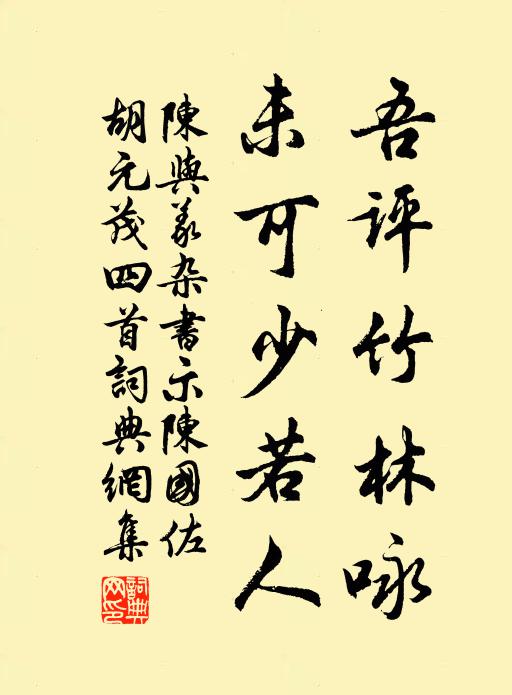 吾評竹林咏
未可少若人
陳與義雜書示陳國佐
胡元茂四首詞典網集
詞典
网印